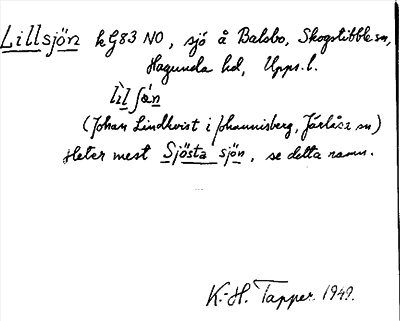 Lillsjön k G83 NO, sjö å Balsbo, Skogstibble sn,
Hagunda hd, Upps. l.
lìl ʃǿn
(Johan Lindkvist i Johannisberg, Järlåsa sn)
Heter mest Sjösta sjön, se detta namn.
K.-H. Tapper. 1949.